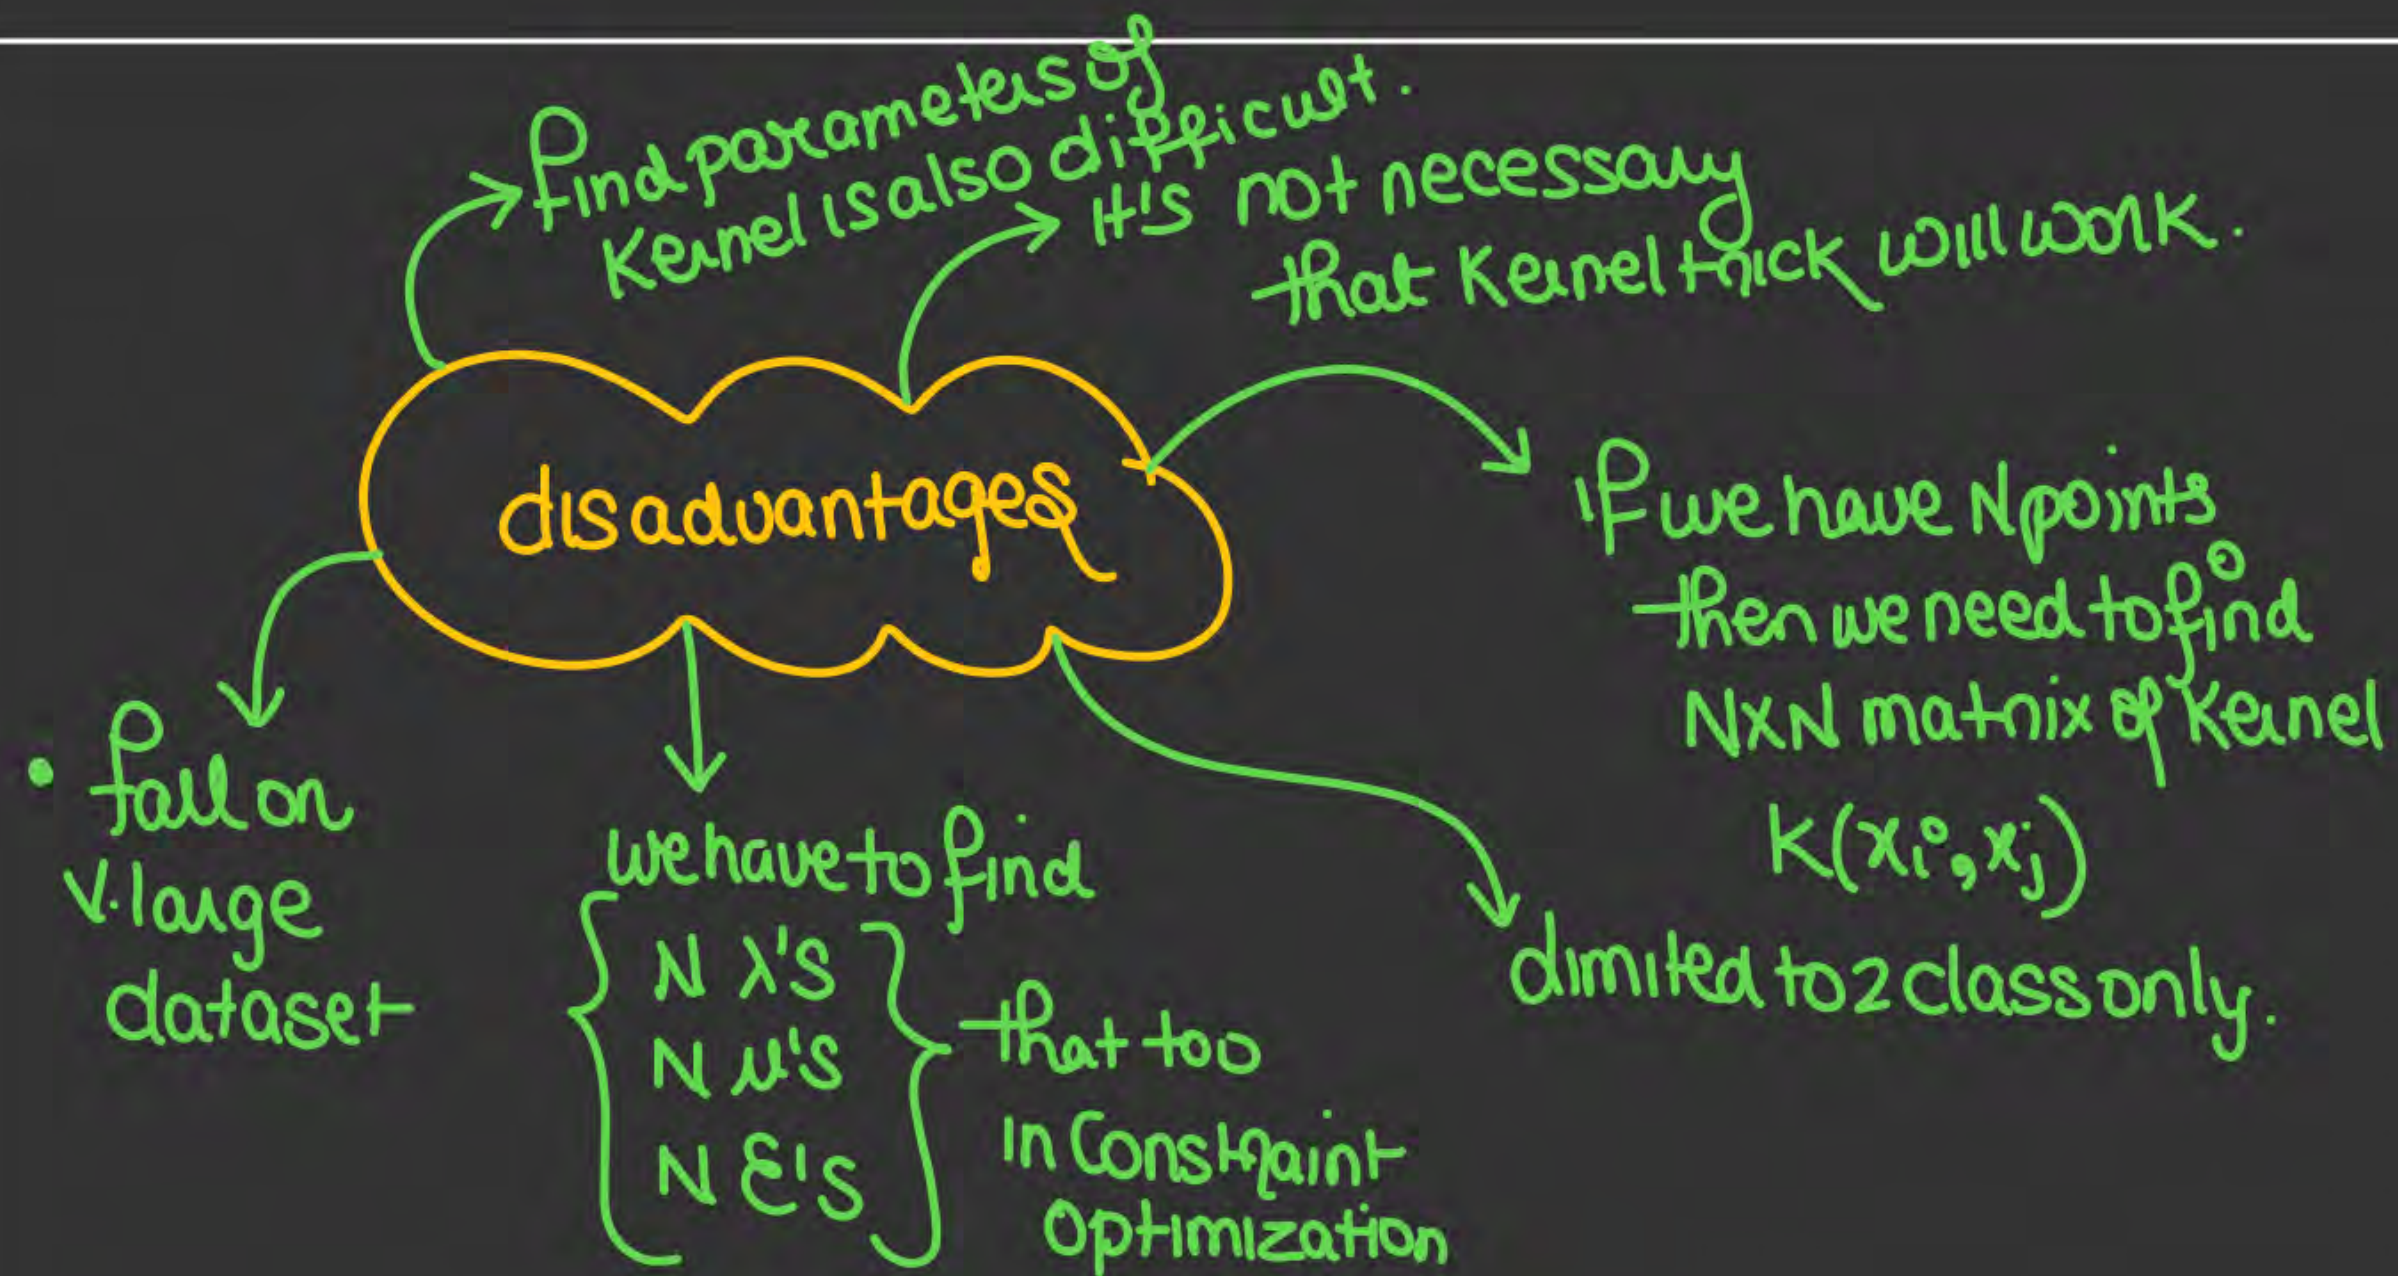 find parameters of
Kernel is also difficult.
It's not necessary
that Kernel trick will work.
disadvantages
if we have N points
then we need to find
NXN matrix of Kernel
K(xi, xj)
limited to 2 class only.
we have to find
N λ's
N μ's
N ε's
that too
in Constraint
Optimization
• fail on
v. large
dataset